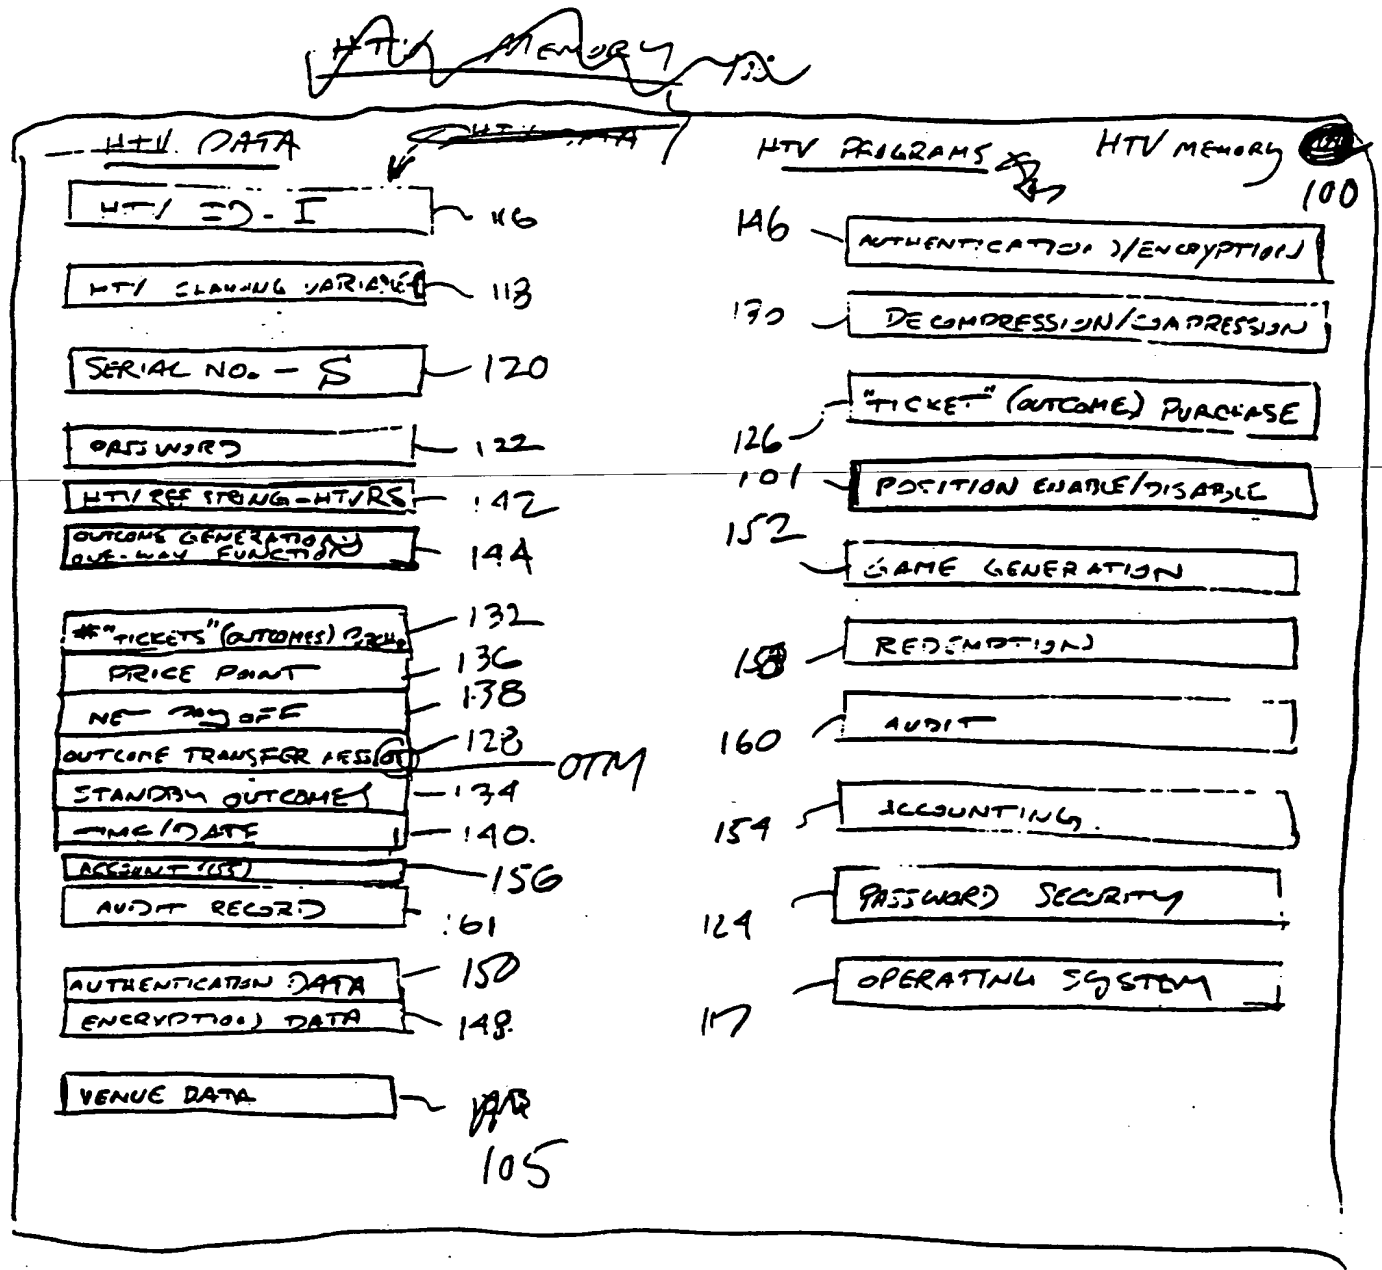 HTV MEMORY
HTV DATA
HTV DATA
HTV PROGRAMS
HTV MEMORY
100
HTV ID - I
116
HTV GAMING VARIABLES
118
SERIAL NO. - S
120
PASSWORD
122
HTV REF STRING-HTVRS
142
OUTCOME GENERATION
ONE-WAY FUNCTION
144
#"TICKETS" (OUTCOMES) PRCH.
132
PRICE POINT
136
NET PAYOFF
138
OUTCOME TRANSFER
128
OTM
STANDBY OUTCOMES
134
TIME/DATE
140.
ACCOUNT (155)
156
AUDIT RECORD
161
AUTHENTICATION DATA
150
ENCRYPTION DATA
148.
VENUE DATA
105
146
AUTHENTICATION/ENCRYPTION
130
DECOMPRESSION/COMPRESSION
"TICKET" (OUTCOME) PURCHASE
126
101
POSITION ENABLE/DISABLE
152
GAME GENERATION
158
REDEMPTION
160
AUDIT
154
ACCOUNTING.
124
PASSWORD SECURITY
117
OPERATING SYSTEM